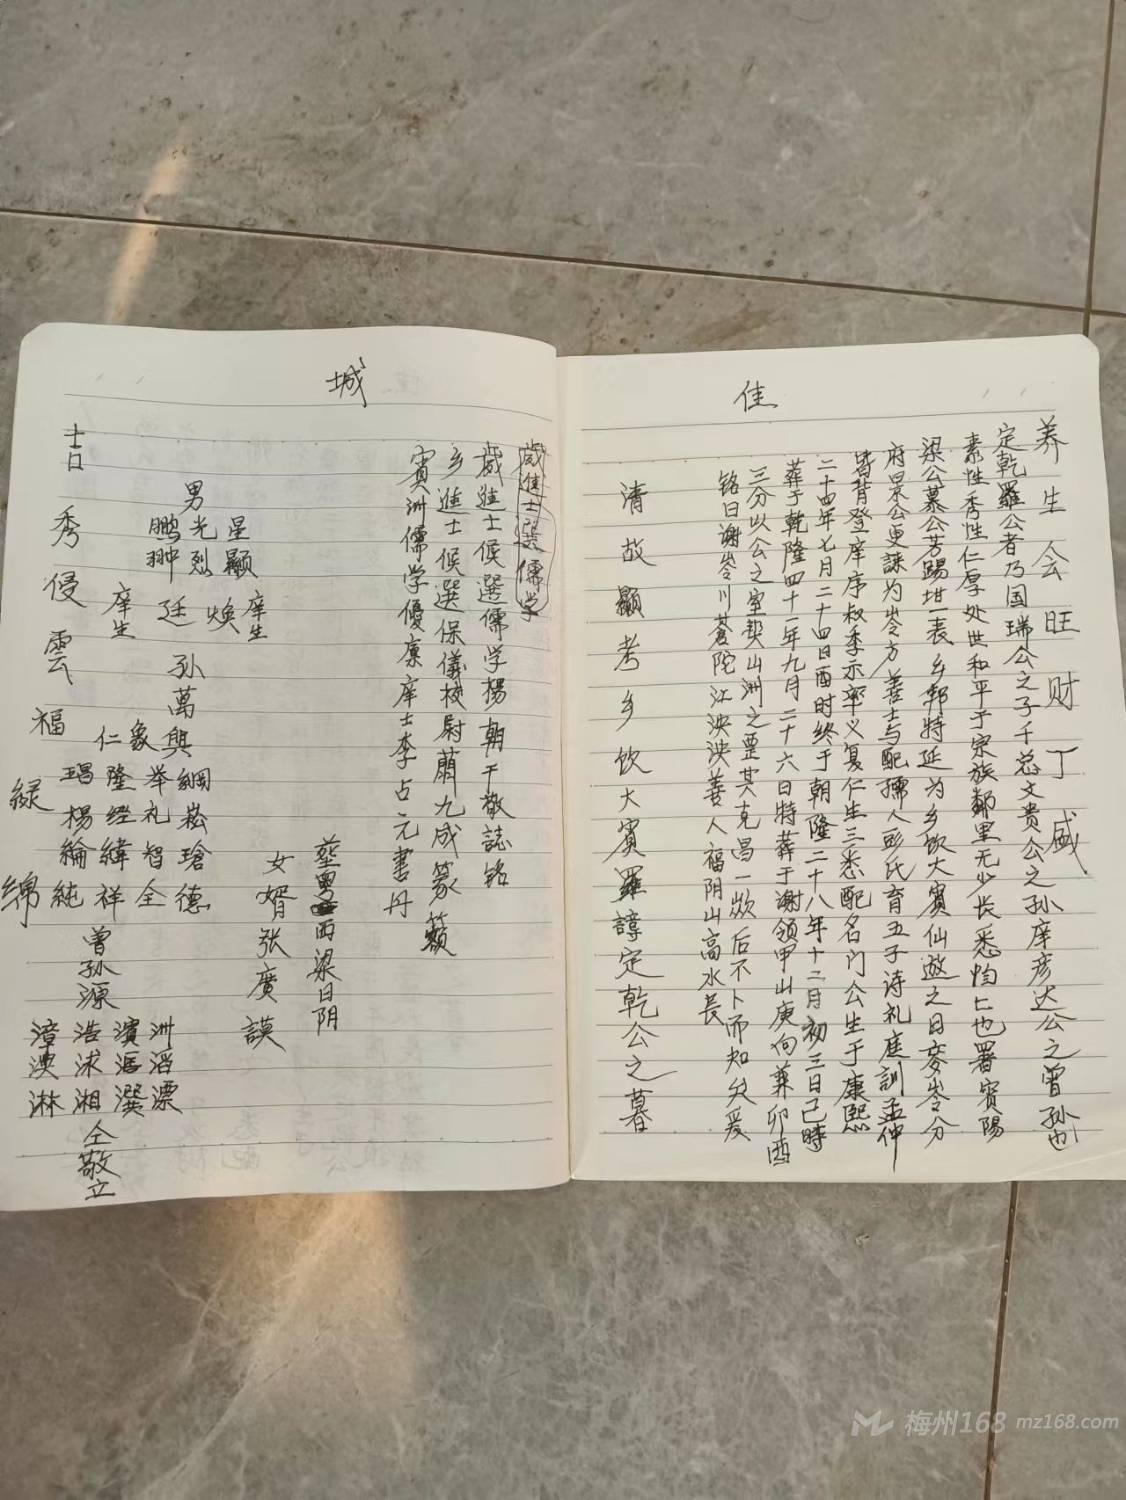 佳
养生会旺财丁盛
定乾羅公者乃国瑞公之子千总文贵公之孙庠彦达公之曾孙也
素性秀性仁厚处世和平于宗族鄰里无少长悉怡仁也署賓陽
梁公慕公芳踢坩一表乡邦特延为乡饮大賓仙遊之日麥岺分
府景公更誄为岺方善士与配孺人彭氏育五子诗礼庭訓孟仲
皆背登庠序叔季示率义复仁生三悉配名门公生于康熙
二十四年七月二十四日酉时终于朝隆二十八年十二月初三日己時
葬于乾隆四十一年九月二十六日特葬于谢领甲山庚向兼卯酉
三分以公之室契山洲之垔其克昌一燉后不卜而知矣爰
铭曰谢岺川蒼陀江泱泱善人福阴山高水長
清故顯考乡饮大賓羅諄定乾公之暮
城
歲進士選儒学
歲進士候選儒学楊朝干敬誌铭
乡進士候選保儀校尉蕭九成篆籲
賓洲儒学優廪庠士李占元書丹
塋西梁日阴
女婿张廣謨
男光星
鹏烈顯
翀
庠生
廷焕
庠生
孙萬與綱崧瑲德
象举礼智全
仁隆经緯祥
瑒楊綸純
曾孙源
洲滔漂
濱滙潠
浩浗湘
漳澳淋
仝敬立
吉
秀侵雲福緑绵
梅州168 mz168.com